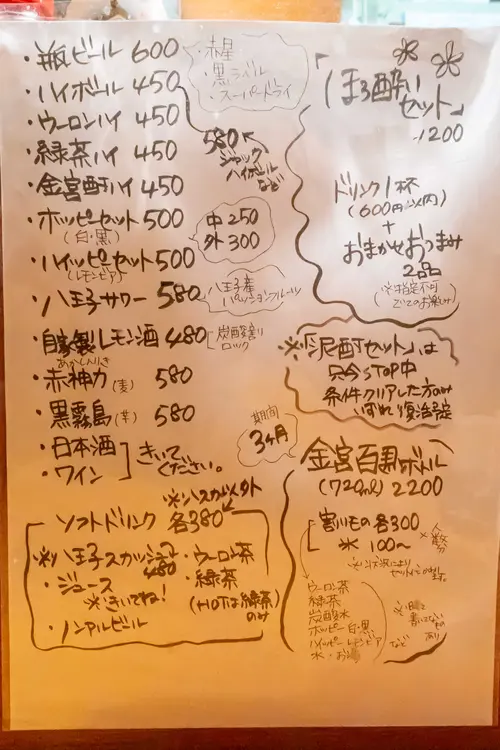 ・瓶ビール 600
・赤星
・黒ラベル
・スーパードライ
・ハイボール 450
580
ジャック
ハイボール
など
・ウーロンハイ 450
・緑茶ハイ 450
・金宮酎ハイ 450
・ホッピーセット 500
(白・黒)
中 250
外 300
・ハイッピーセット 500
(レモンビア)
・八王子サワー 580
八王子産
パッションフルーツ
・自家製レモン酒 480
炭酸割り
ロック
あかしんりき
・赤神力 (麦) 580
・黒霧島 (芋) 580
・日本酒
・ワイン
きいて
ください。
「ほろ酔い
セット」
1200
ドリンク1杯
(600円以内)
+
おまかせおつまみ
2品
(※指定不可
「※『泥酔セット』は
只今STOP中
条件クリアした方のみ
いずれ復活予定
期間
3ヶ月
金宮百黒ボトル
(720ml) 2200
割りもの各300
氷 100〜
×人数
ウーロン茶
緑茶
炭酸水
ホッピー白・黒
ハイッピーレモンビア
水・お湯
など
ソフトドリンク 各380
※八王子スカッシュ
480
・ウーロン茶
・ジュース
※きいてね!
・緑茶
(HOTは緑茶)
のみ
・ノンアルビール